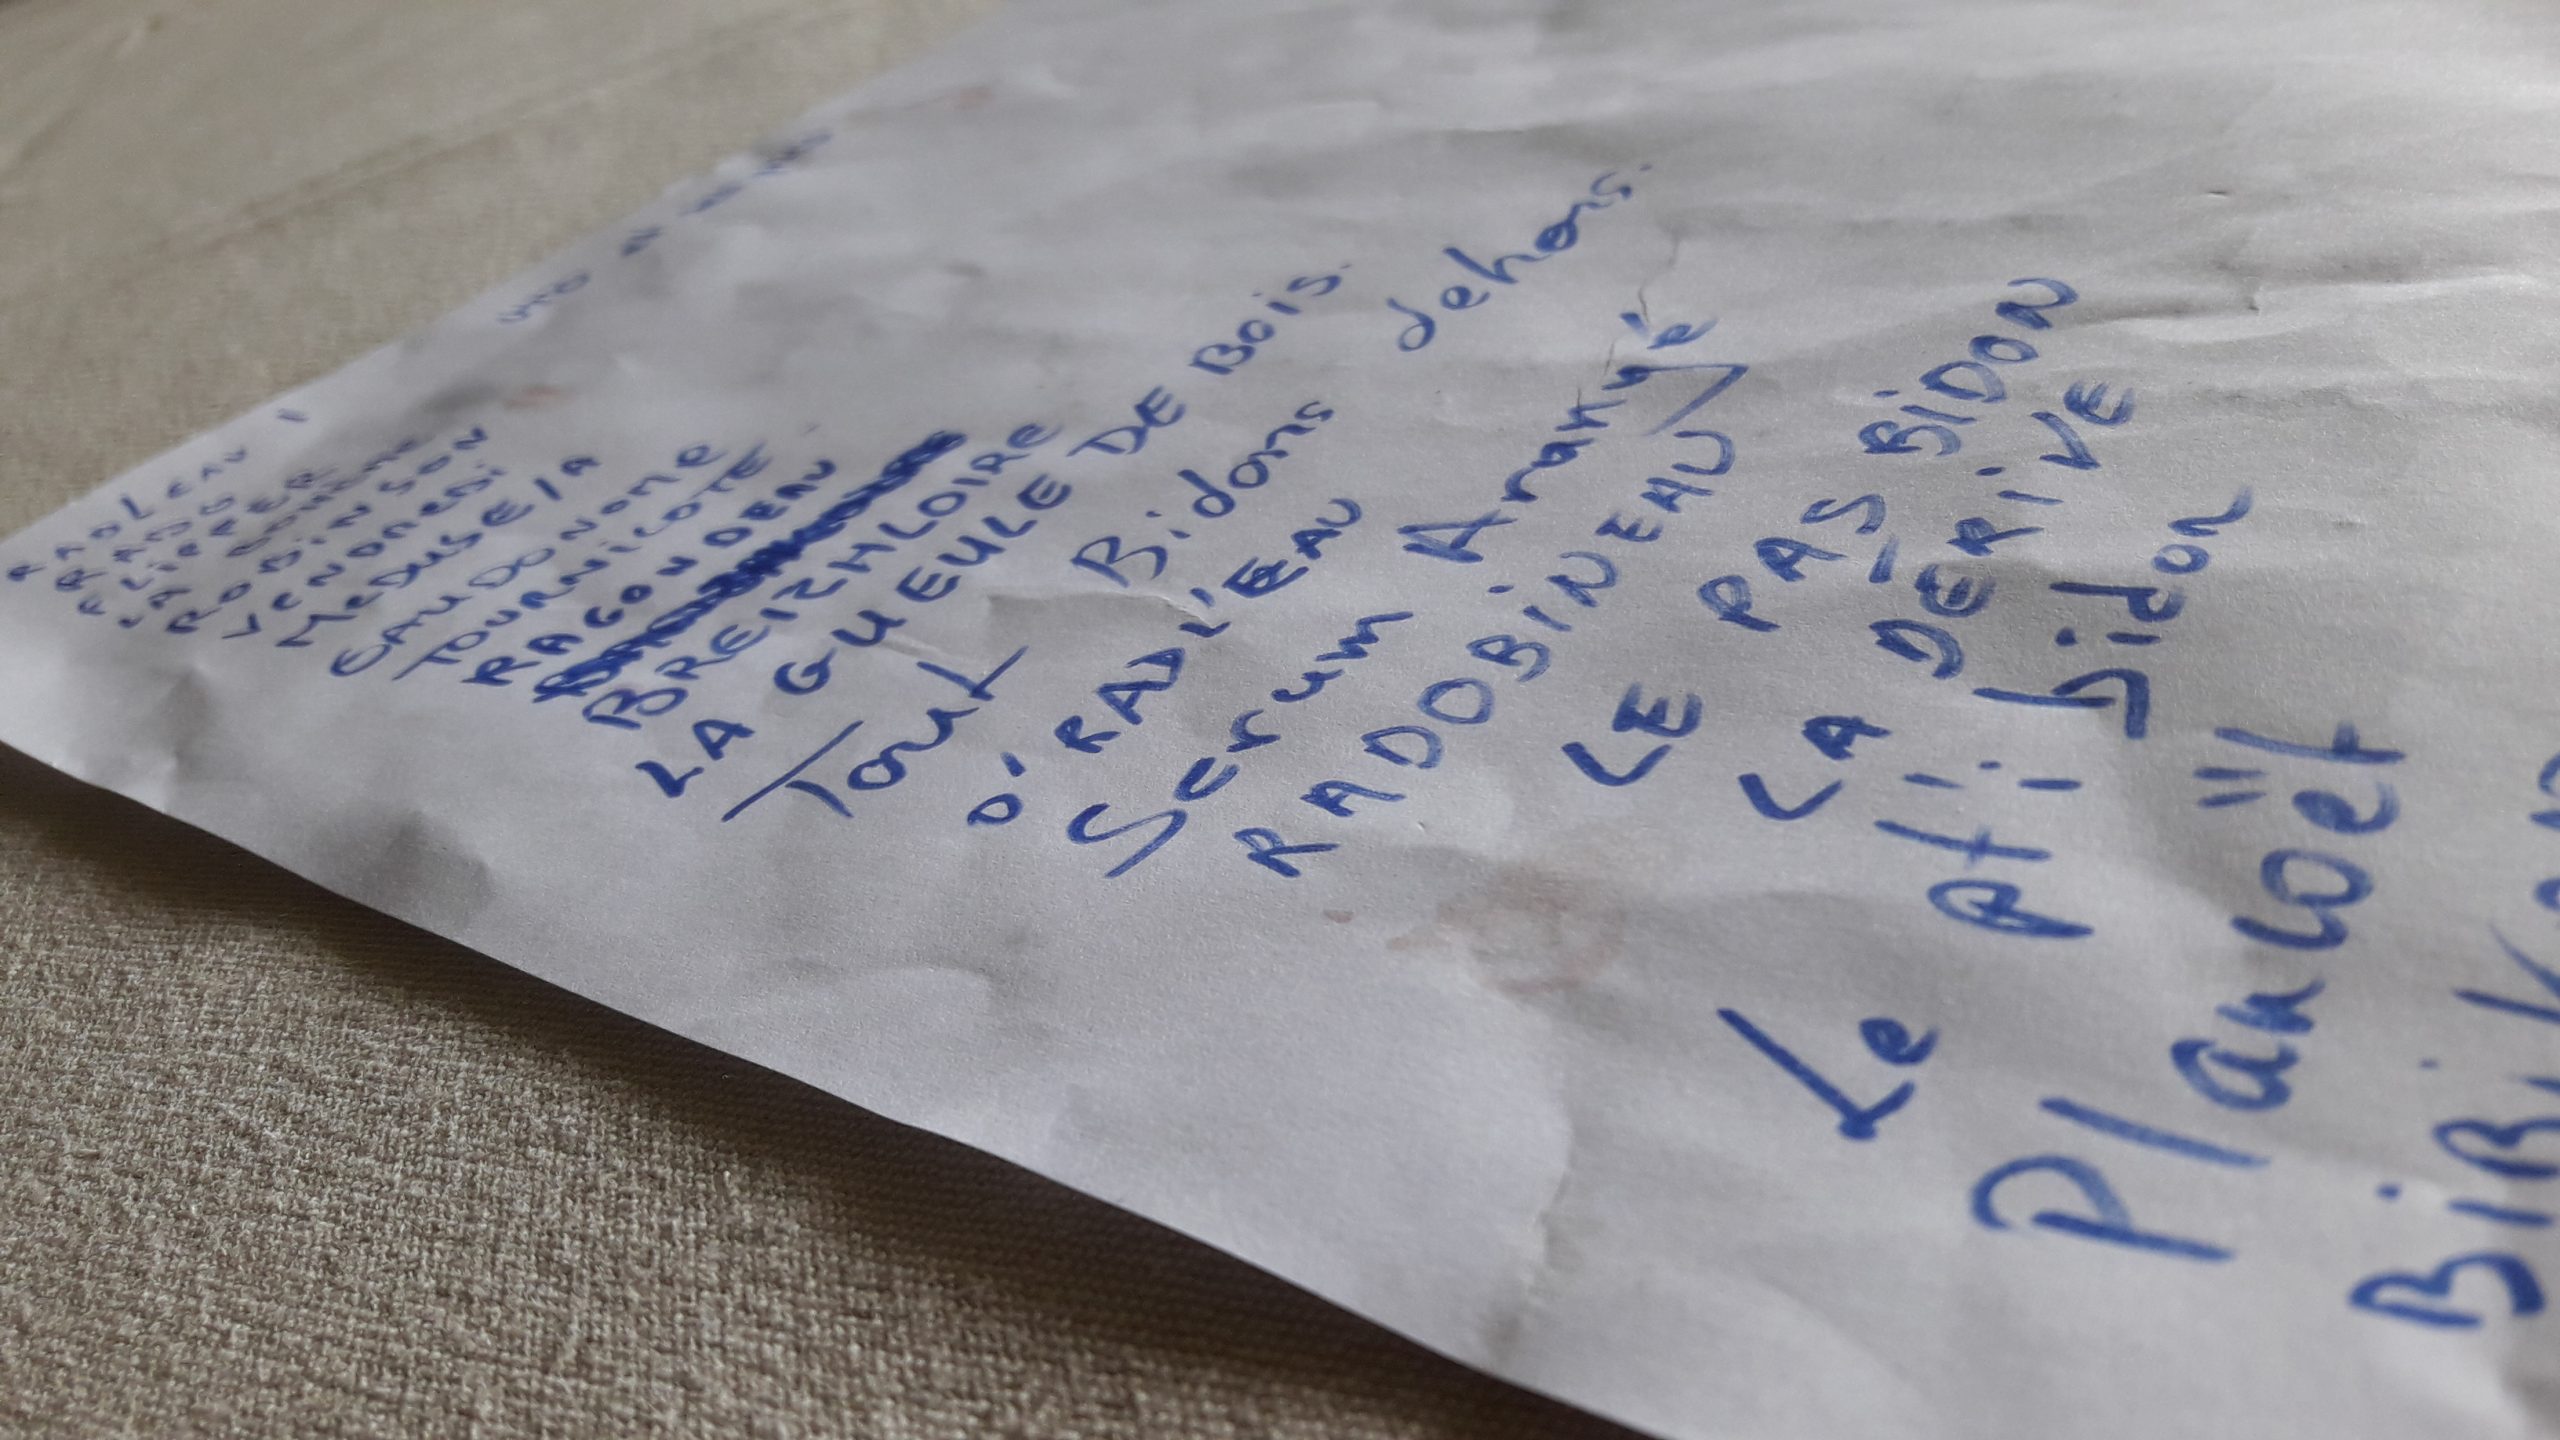 RADLEAU
RADO
FLIPPER
LA BOHEME
ROBINSON
VENDREDI
MEDUSE/A
EAU DO NOME
TOURNICOTE
RAGONDEAU
BREIZHLOIRE
LA GUEULE DE BOIS.
Tout Bidons dehors.
O' RADL'EAU
Serum Arangé
RADOBINEAU
LE PAS BIDON
LA DÉRIVE
Le pti bidon
Plankoët